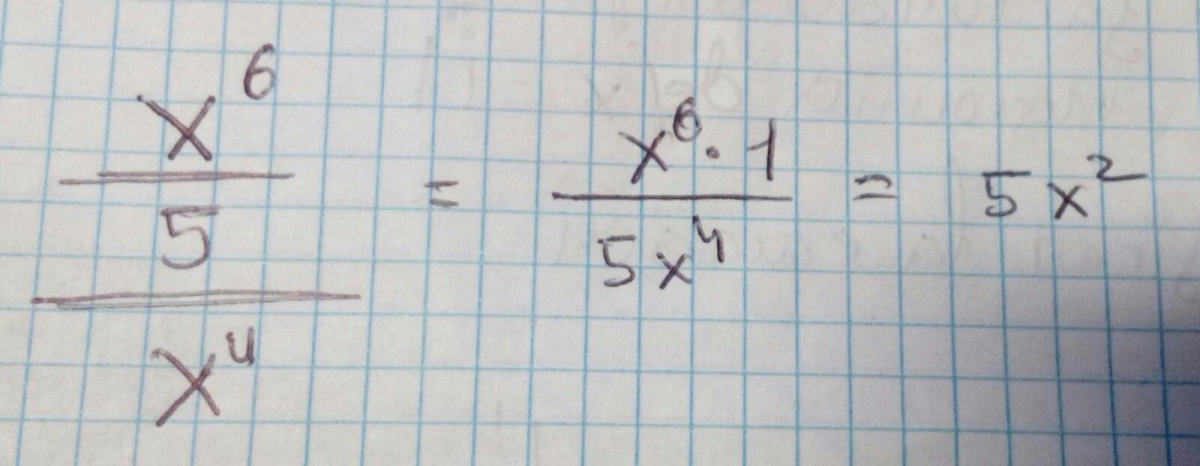 x⁶/5 / x⁴ = x⁶·1 / 5x⁴ = 5x²